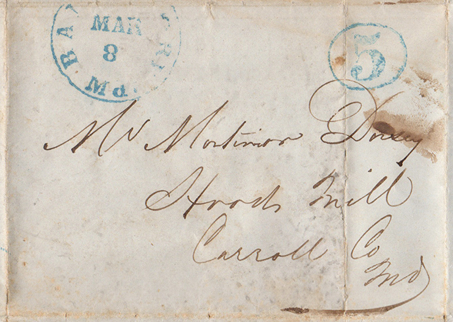 BA
MAR
8
5
Mr Mortimer Dorsey
Hoods Mill
Carroll Co
Md